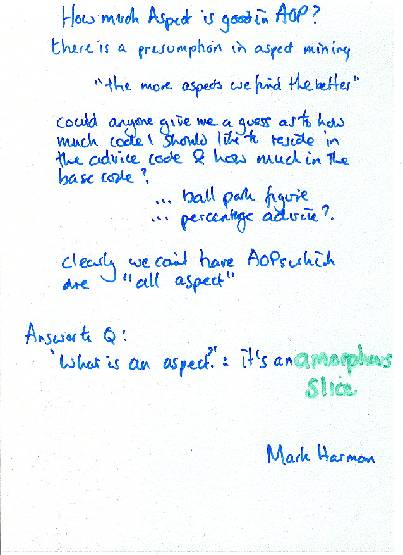 How much Aspect is good in AOP?
there is a presumption in aspect mining
"the more aspects we find the better"
could anyone give me a guess as to how
much code I should like to reside in
the advice code & how much in the
base code?
... ball park figure
... percentage advice?.
clearly we can't have AOPs which
are "all aspect"
Answer to Q:
"What is an aspect?": it's an amorphous
slice
Mark Harman